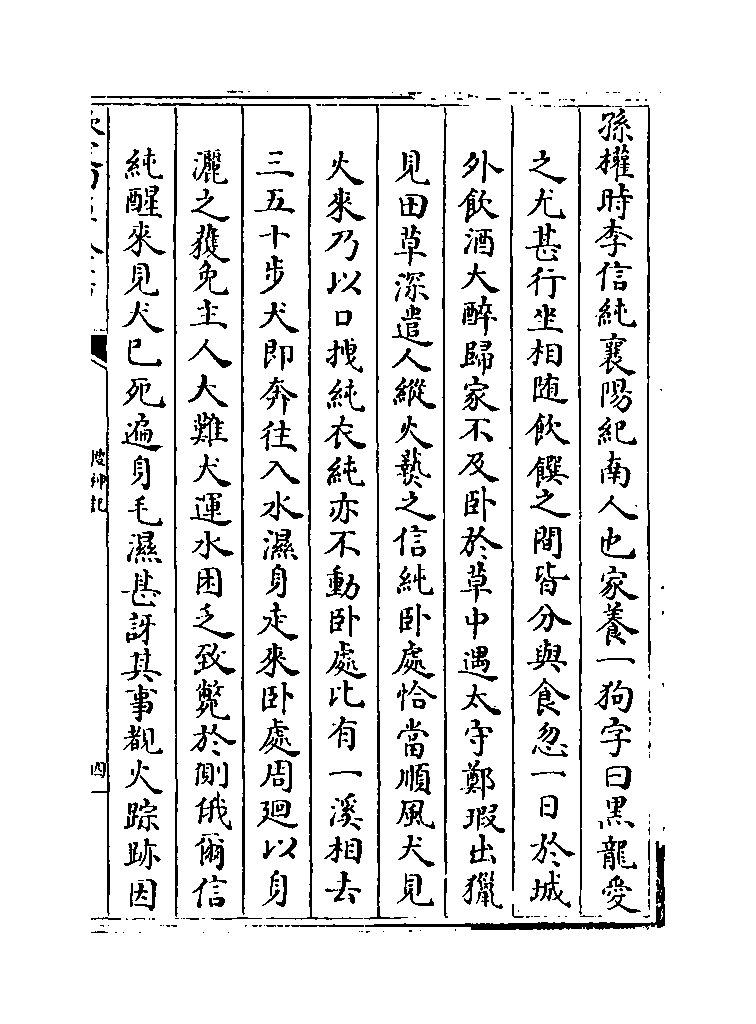 孫權時李信純襄陽紀南人也家養一狗字曰黑龍愛
之尤甚行坐相随飲饌之間皆分與食忽一日於城
外飲酒大醉歸家不及卧於草中遇太守鄭瑕出獵
見田草深遣人縱火爇之信純卧處恰當順風犬見
火來乃以口拽純衣純亦不動卧處比有一溪相去
三五十步犬即奔往入水濕身走來卧處周廻以身
灑之獲免主人大難犬運水困乏致斃於側俄爾信
純醒來見犬已死遍身毛濕甚訝其事覩火踪跡因
搜神記
四